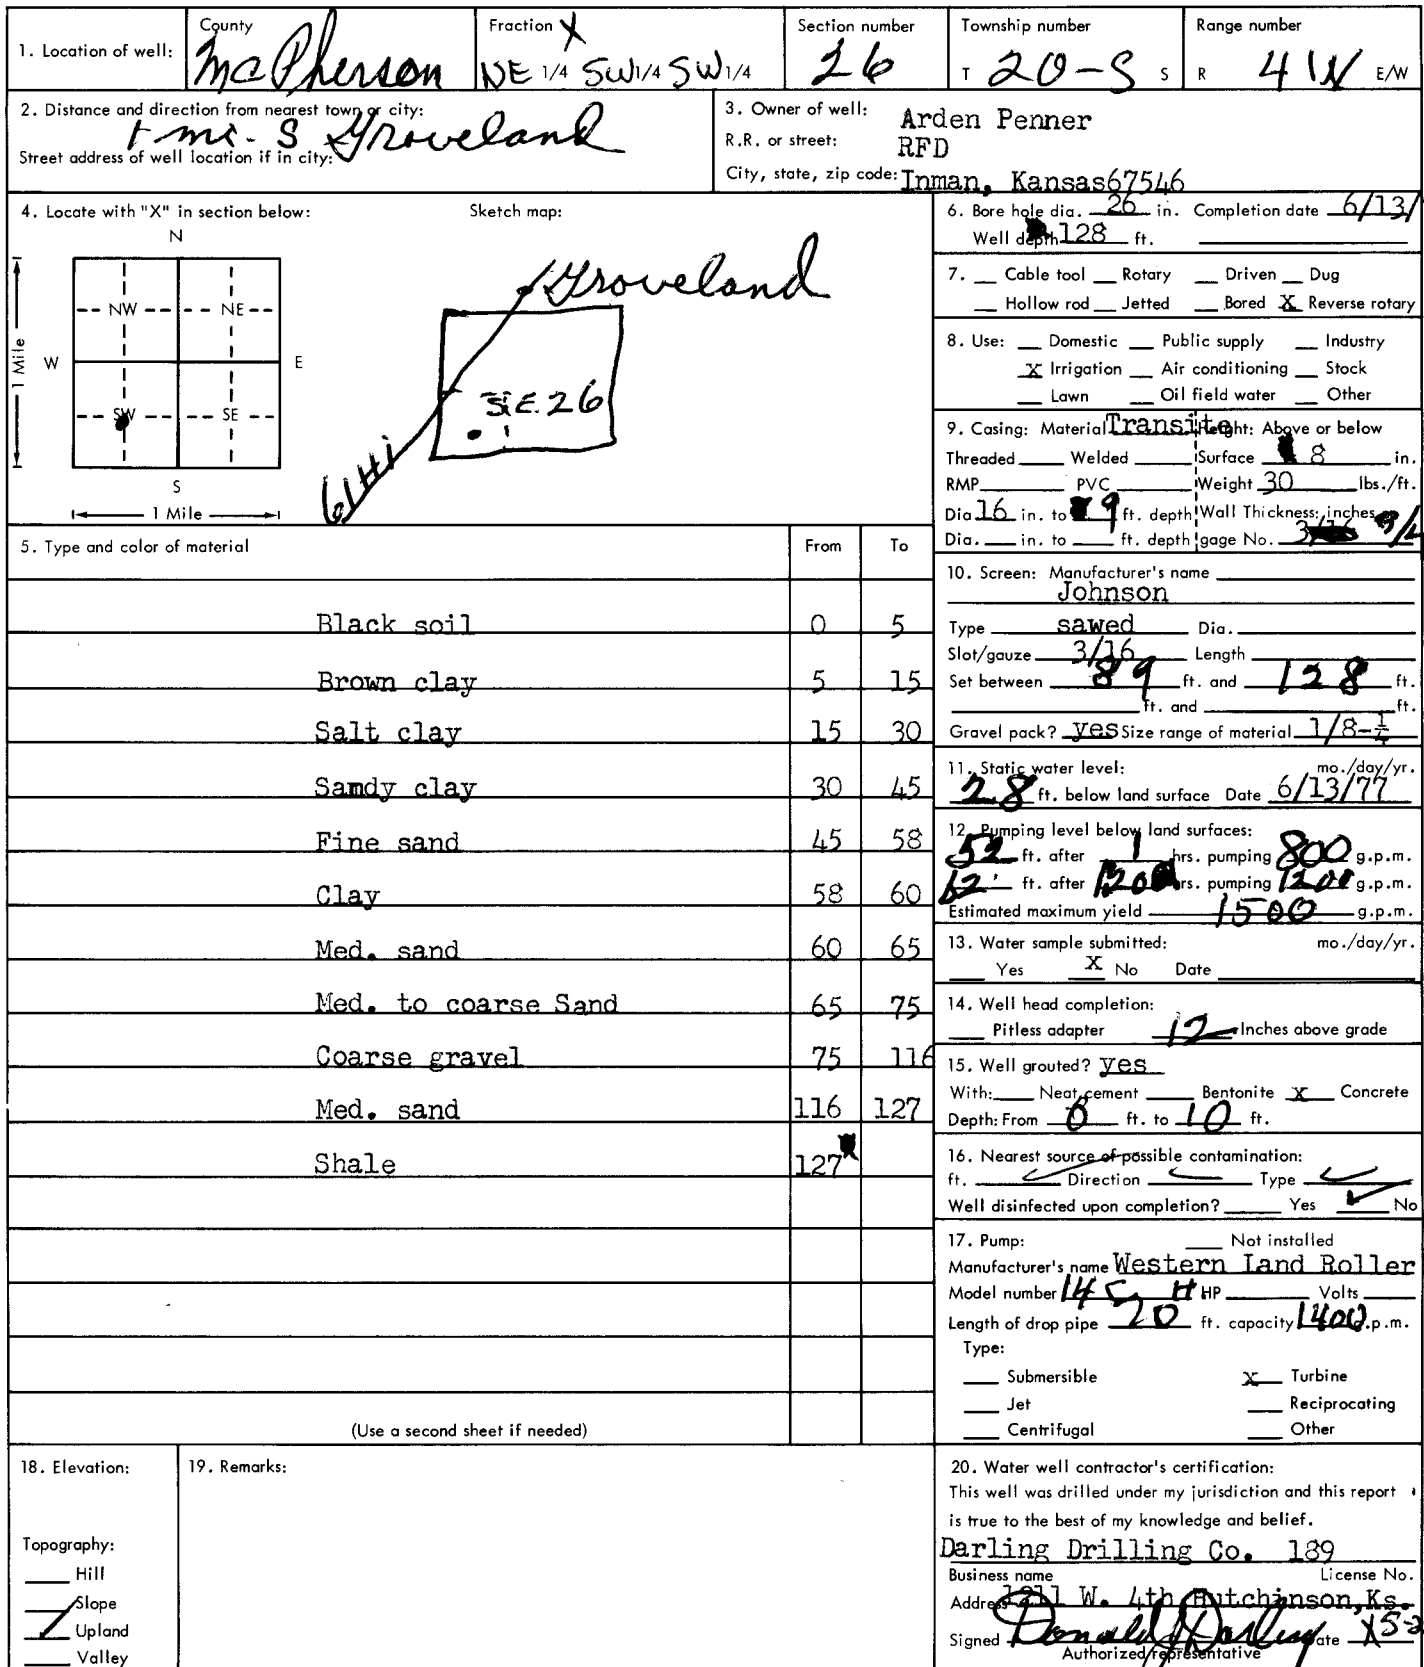 1. Location of well:
County
McPherson
Fraction X
NE 1/4 SW 1/4 SW 1/4
Section number
26
Township number
T 20-S S
Range number
R 4 W E/W
2. Distance and direction from nearest town or city:
1 mi. S Groveland
Street address of well location if in city:
3. Owner of well: Arden Penner
R.R. or street: RFD
City, state, zip code: Inman, Kansas67546
4. Locate with "X" in section below:
N
NW NE
W E
SW SE
S
1 Mile
1 Mile
Sketch map:
Groveland
26
5. Type and color of material From To
Black soil 0 5
Brown clay 5 15
Salt clay 15 30
Samdy clay 30 45
Fine sand 45 58
Clay 58 60
Med. sand 60 65
Med. to coarse Sand 65 75
Coarse gravel 75 116
Med. sand 116 127
Shale 127
(Use a second sheet if needed)
6. Bore hole dia. 26 in. Completion date 6/13/
Well depth 128 ft.
7. Cable tool Rotary Driven Dug
Hollow rod Jetted Bored X Reverse rotary
8. Use: Domestic Public supply Industry
X Irrigation Air conditioning Stock
Lawn Oil field water Other
9. Casing: Material Transite Height: Above or below
Threaded Welded Surface 8 in.
RMP PVC Weight 30 lbs./ft.
Dia 16 in. to 9 ft. depth Wall Thickness: inches
Dia. in. to ft. depth gage No.
10. Screen: Manufacturer's name
Johnson
Type sawed Dia.
Slot/gauze 3/16 Length
Set between 89 ft. and 128 ft.
ft. and ft.
Gravel pack? yes Size range of material 1/8-1/4
11. Static water level: mo./day/yr.
28 ft. below land surface Date 6/13/77
12. Pumping level below land surfaces:
52 ft. after 1 hrs. pumping 800 g.p.m.
62 ft. after hrs. pumping 1200 g.p.m.
Estimated maximum yield 1500 g.p.m.
13. Water sample submitted: mo./day/yr.
Yes X No Date
14. Well head completion:
Pitless adapter 12 Inches above grade
15. Well grouted? yes
With: Neat cement Bentonite X Concrete
Depth: From 0 ft. to 10 ft.
16. Nearest source of possible contamination:
ft. Direction Type
Well disinfected upon completion? Yes No
17. Pump: Not installed
Manufacturer's name Western Land Roller
Model number 14 H HP Volts
Length of drop pipe 70 ft. capacity 1400 g.p.m.
Type:
Submersible X Turbine
Jet Reciprocating
Centrifugal Other
18. Elevation:
Topography:
Hill
Slope
Upland
Valley
19. Remarks:
20. Water well contractor's certification:
This well was drilled under my jurisdiction and this report
is true to the best of my knowledge and belief.
Darling Drilling Co. 189
Business name License No.
Address W. 4th Hutchinson,Ks.
Signed Donald J Darling Date
Authorized representative